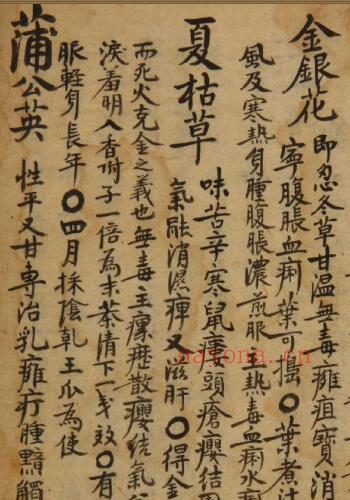 金銀花
即忍冬草甘温無毒癰疽寳消
寧腹脹血痢葉可搗〇葉煮
風及寒熱身腫腹脹濃煎服主熱毒血痢水
夏枯草
味苦辛寒鼠瘻頭瘡癭結
氣融消濕痺又滋肝〇得金
而死火克金之義也無毒主瘰癧散癭結氣
淚羞明入香附子一倍為末茶清下一戔效〇有
脈軽身長年〇四月採陰乹王瓜為使
蒲公英
性平又甘専治乳癰疔腫
nayona.cn